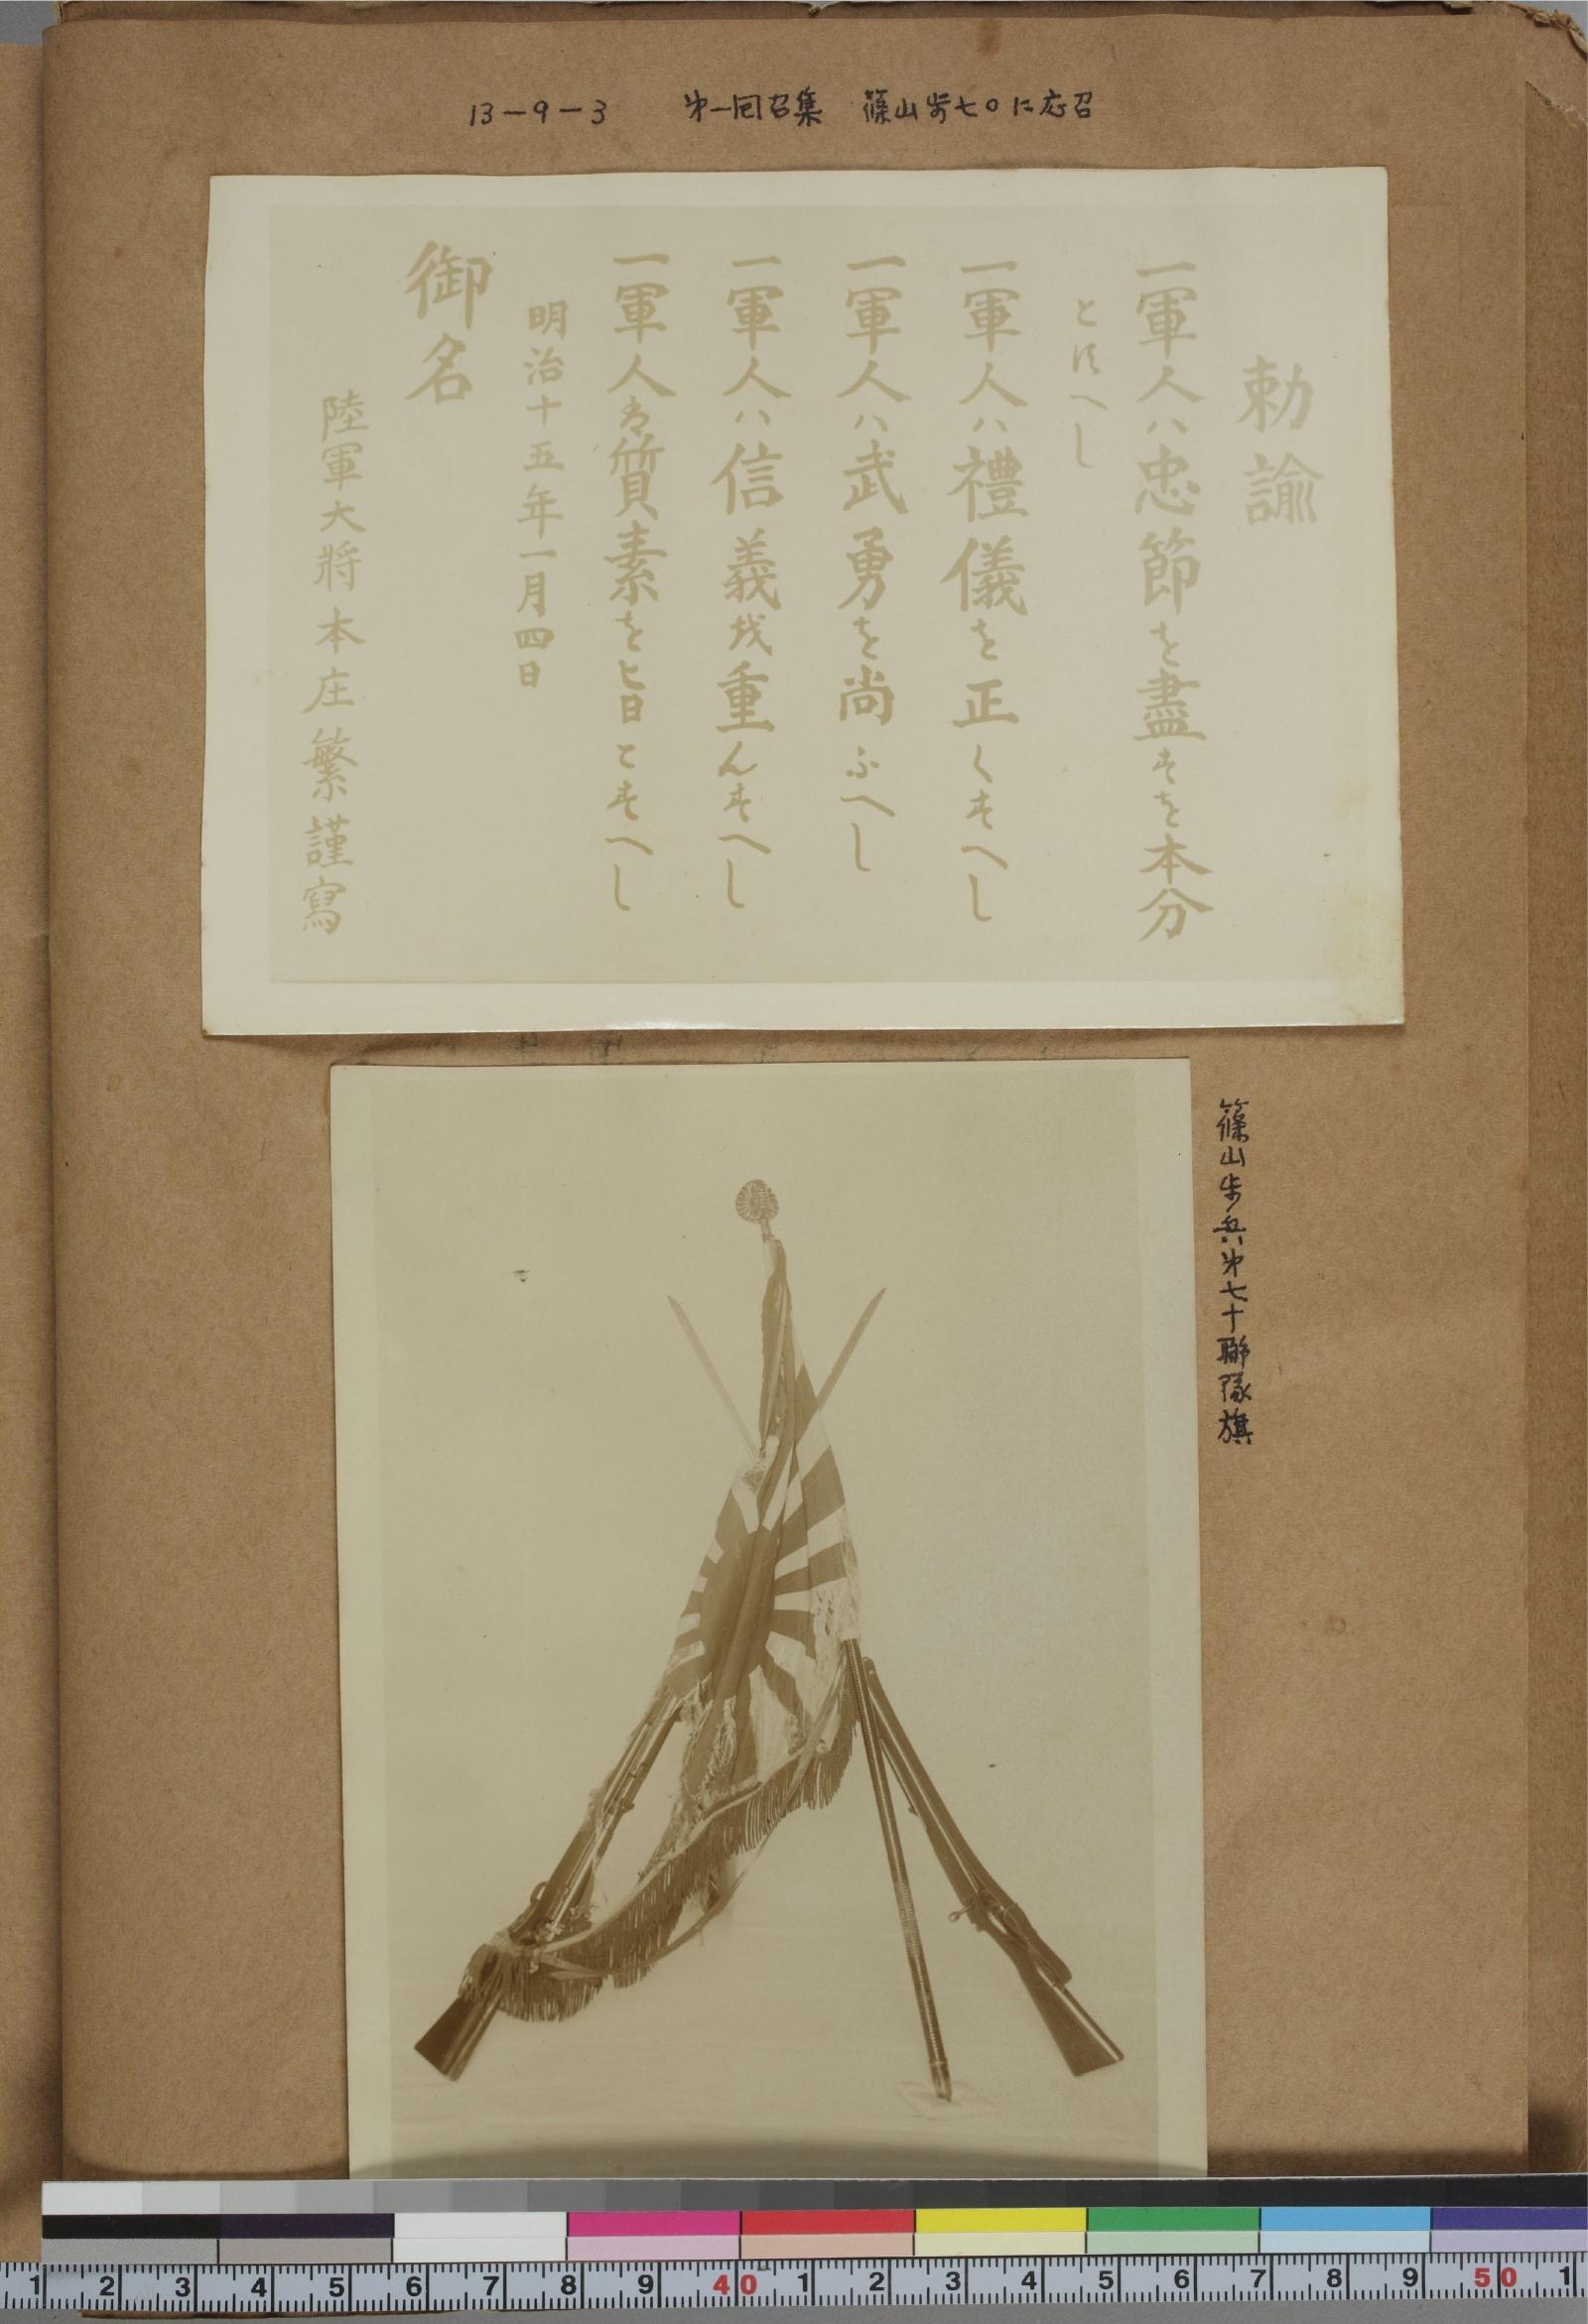 13-9-3 㐧一回召集 篠山歩七〇に応召
勅諭
一軍人ハ忠節を盡すを本分
とすへし
一軍人ハ禮儀を正くすへし
一軍人ハ武勇を尚ふへし
一軍人ハ信義を重んすへし
一軍人は質素を旨とすへし
明治十五年一月四日
御名
陸軍大將本庄繁謹寫
篠山歩兵㐧七十聯隊旗
1 2 3 4 5 6 7 8 9 40 1 2 3 4 5 6 7 8 9 50 1